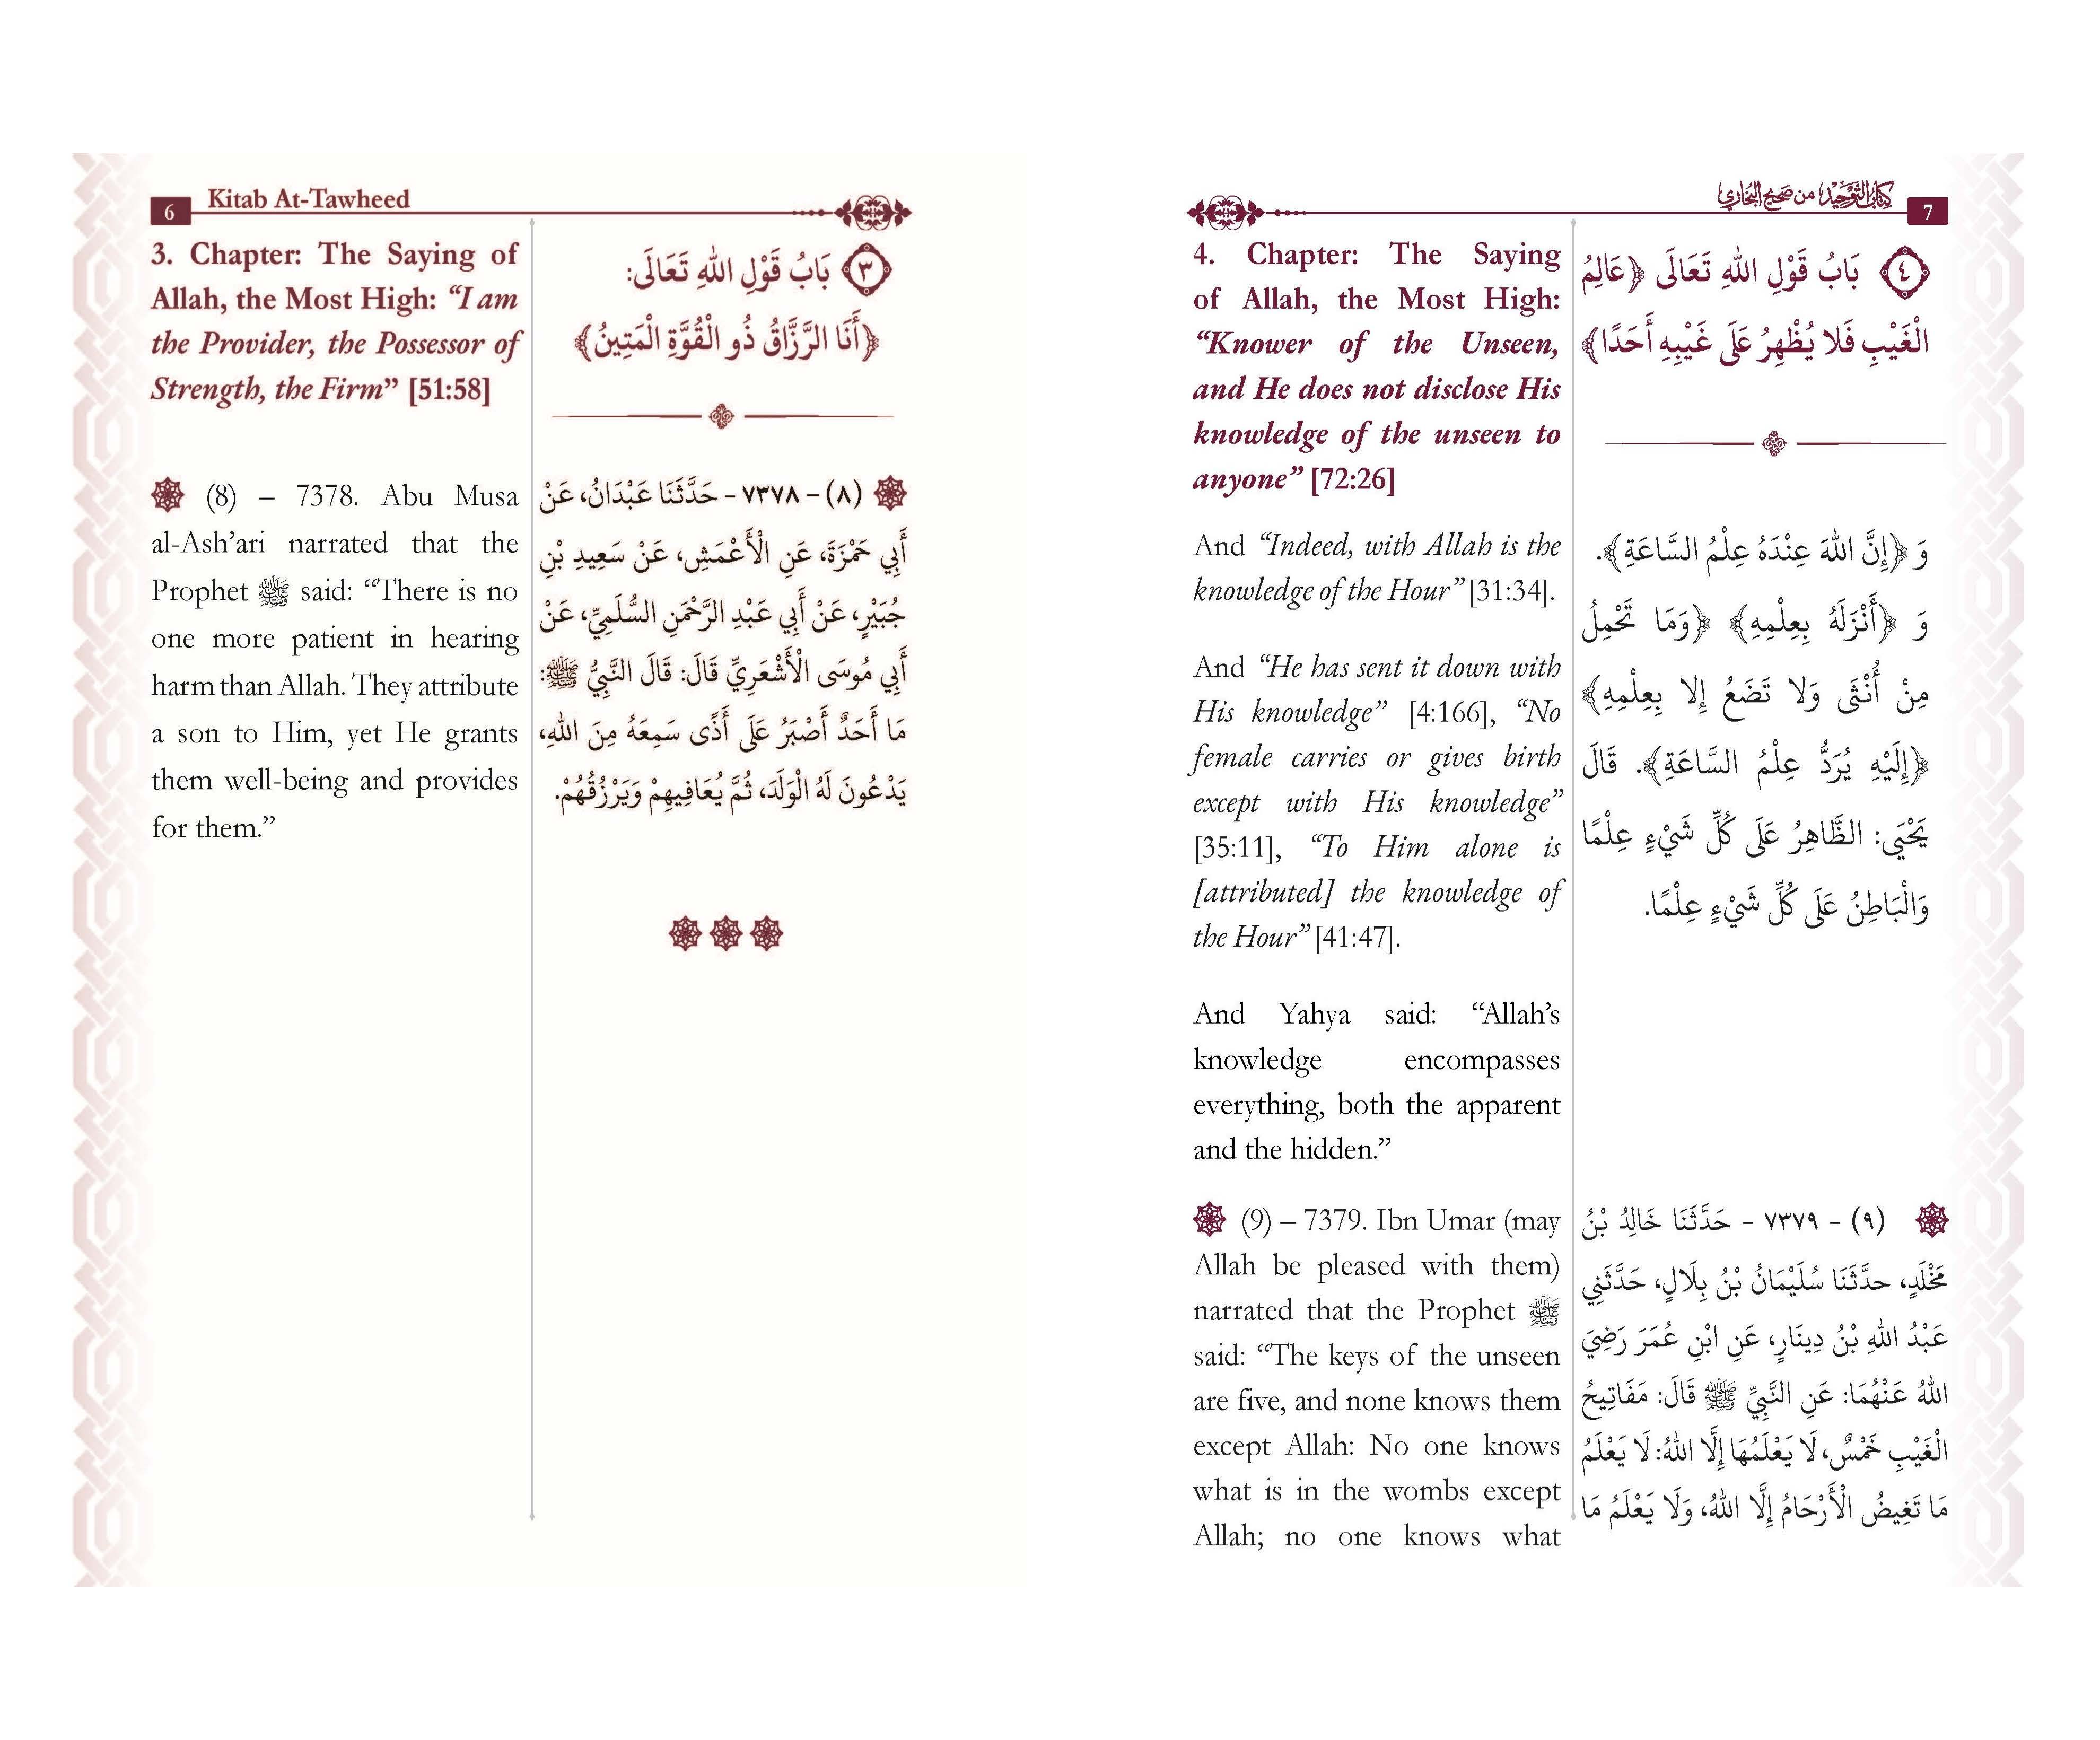 6
Kitab At-Tawheed
3. Chapter: The Saying of
Allah, the Most High: “I am
the Provider, the Possessor of
Strength, the Firm” [51:58]
(8) – 7378. Abu Musa
al-Ash’ari narrated that the
Prophet ﷺ said: “There is no
one more patient in hearing
harm than Allah. They attribute
a son to Him, yet He grants
them well-being and provides
for them.”
٣ بَابُ قَوْلِ اللهِ تَعَالَى:
﴿أَنَا الرَّزَّاقُ ذُو الْقُوَّةِ الْمَتِينُ﴾
(٨) – ٧٣٧٨ – حَدَّثَنَا عَبْدَانُ، عَنْ
أَبِي حَمْزَةَ، عَنِ الْأَعْمَشِ، عَنْ سَعِيدِ بْنِ
جُبَيْرٍ، عَنْ أَبِي عَبْدِ الرَّحْمَنِ السُّلَمِيِّ، عَنْ
أَبِي مُوسَى الْأَشْعَرِيِّ قَالَ: قَالَ النَّبِيُّ ﷺ:
مَا أَحَدٌ أَصْبَرُ عَلَى أَذًى سَمِعَهُ مِنَ اللهِ،
يَدْعُونَ لَهُ الْوَلَدَ، ثُمَّ يُعَافِيهِمْ وَيَرْزُقُهُمْ.
كتاب التوحيد من صحيح البخاري
7
4. Chapter: The Saying
of Allah, the Most High:
“Knower of the Unseen,
and He does not disclose His
knowledge of the unseen to
anyone” [72:26]
And “Indeed, with Allah is the
knowledge of the Hour” [31:34].
And “He has sent it down with
His knowledge” [4:166], “No
female carries or gives birth
except with His knowledge”
[35:11], “To Him alone is
[attributed] the knowledge of
the Hour” [41:47].
And Yahya said: “Allah’s
knowledge encompasses
everything, both the apparent
and the hidden.”
(9) – 7379. Ibn Umar (may
Allah be pleased with them)
narrated that the Prophet ﷺ
said: “The keys of the unseen
are five, and none knows them
except Allah: No one knows
what is in the wombs except
Allah; no one knows what
٤ بَابُ قَوْلِ اللهِ تَعَالَى ﴿عَالِمُ
الْغَيْبِ فَلا يُظْهِرُ عَلَى غَيْبِهِ أَحَدًا﴾
وَ ﴿إِنَّ اللهَ عِنْدَهُ عِلْمُ السَّاعَةِ﴾.
وَ ﴿أَنْزَلَهُ بِعِلْمِهِ﴾ ﴿وَمَا تَحْمِلُ
مِنْ أُنْثَى وَلا تَضَعُ إِلا بِعِلْمِهِ﴾
﴿إِلَيْهِ يُرَدُّ عِلْمُ السَّاعَةِ﴾. قَالَ
يَحْيَى: الظَّاهِرُ عَلَى كُلِّ شَيْءٍ عِلْمًا
وَالْبَاطِنُ عَلَى كُلِّ شَيْءٍ عِلْمًا.
(٩) – ٧٣٧٩ – حَدَّثَنَا خَالِدُ بْنُ
مَخْلَدٍ، حدَّثَنَا سُلَيْمَانُ بْنُ بِلَالٍ، حَدَّثَنِي
عَبْدُ اللهِ بْنُ دِينَارٍ، عَنِ ابْنِ عُمَرَ رَضِيَ
اللهُ عَنْهُمَا: عَنِ النَّبِيِّ ﷺ قَالَ: مَفَاتِيحُ
الْغَيْبِ خَمْسٌ، لَا يَعْلَمُهَا إِلَّا اللهُ: لَا يَعْلَمُ
مَا تَغِيضُ الْأَرْحَامُ إِلَّا اللهُ، وَلَا يَعْلَمُ مَا